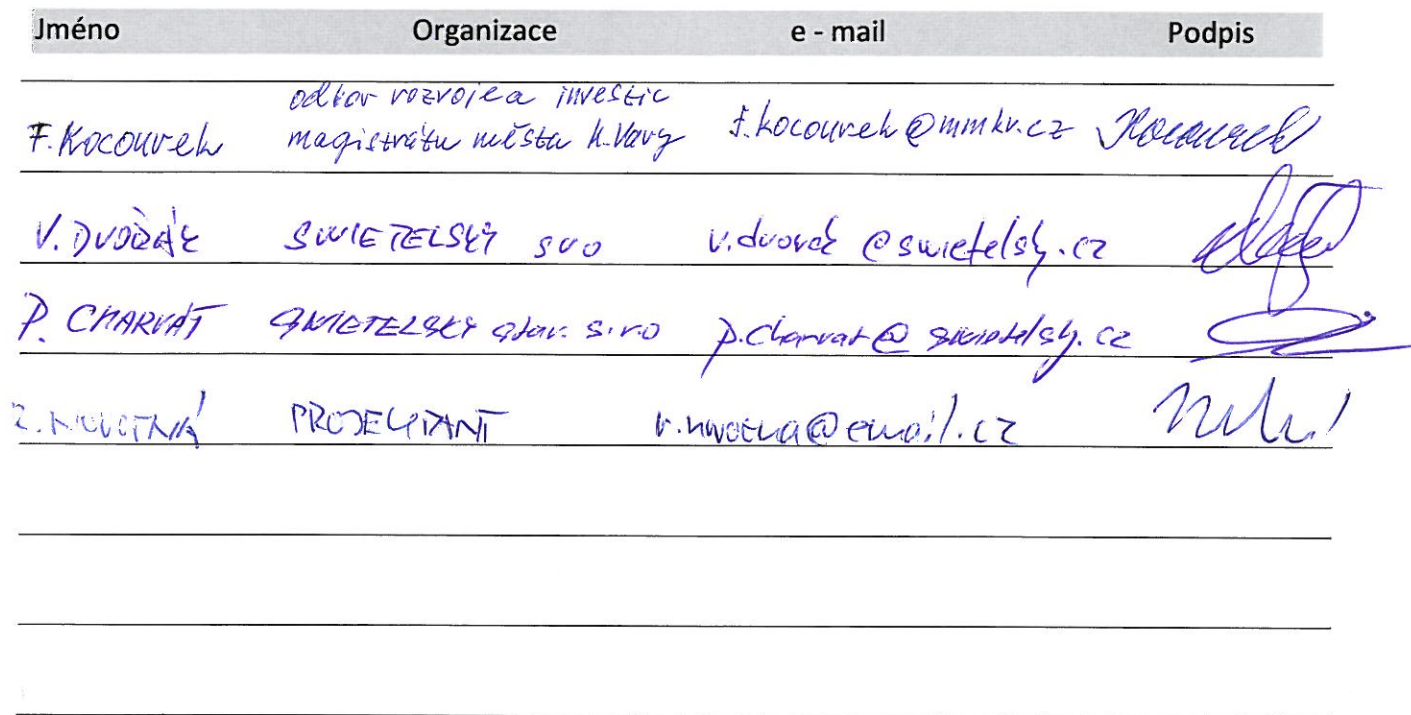 Jméno Organizace e - mail Podpis
odbor rozvoje a investic
F. Kocourek magistrátu města K. Vary f.kocourek@mmkv.cz Kocourek
V. DVOŘÁK SWIETELSKÝ sro v.dvorak@swietelsky.cz
P. CHARVÁT SWIETELSKÝ stav. s.r.o p.charvat@swietelsky.cz
NOVOTNÁ PROJEKTANT